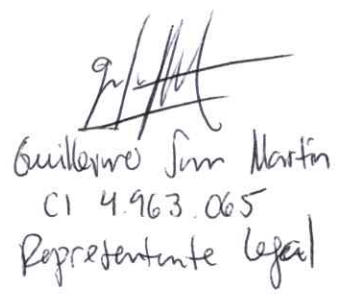 Guillermo San Martin
CI 4.963.065
Representante legal